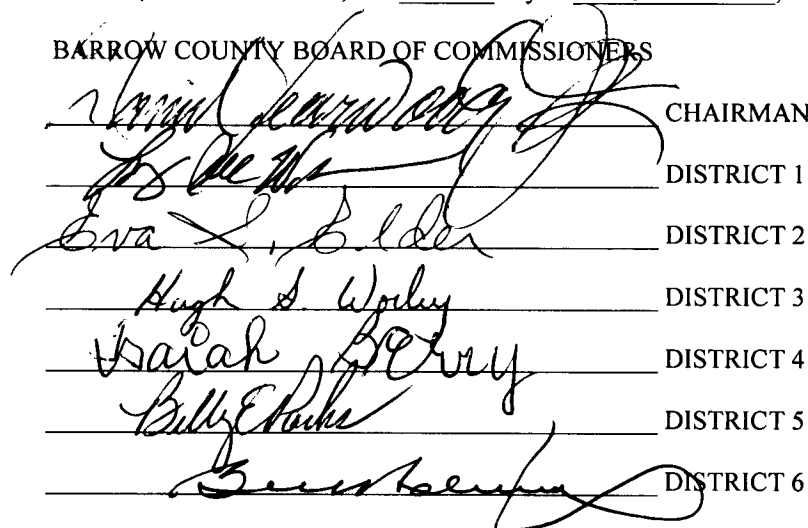 BARROW COUNTY BOARD OF COMMISSIONERS
Yearwood Jr CHAIRMAN
DISTRICT 1
Eva L. Elder DISTRICT 2
Hugh S. Worley DISTRICT 3
Isaiah Berry DISTRICT 4
Billy E Parks DISTRICT 5
DISTRICT 6